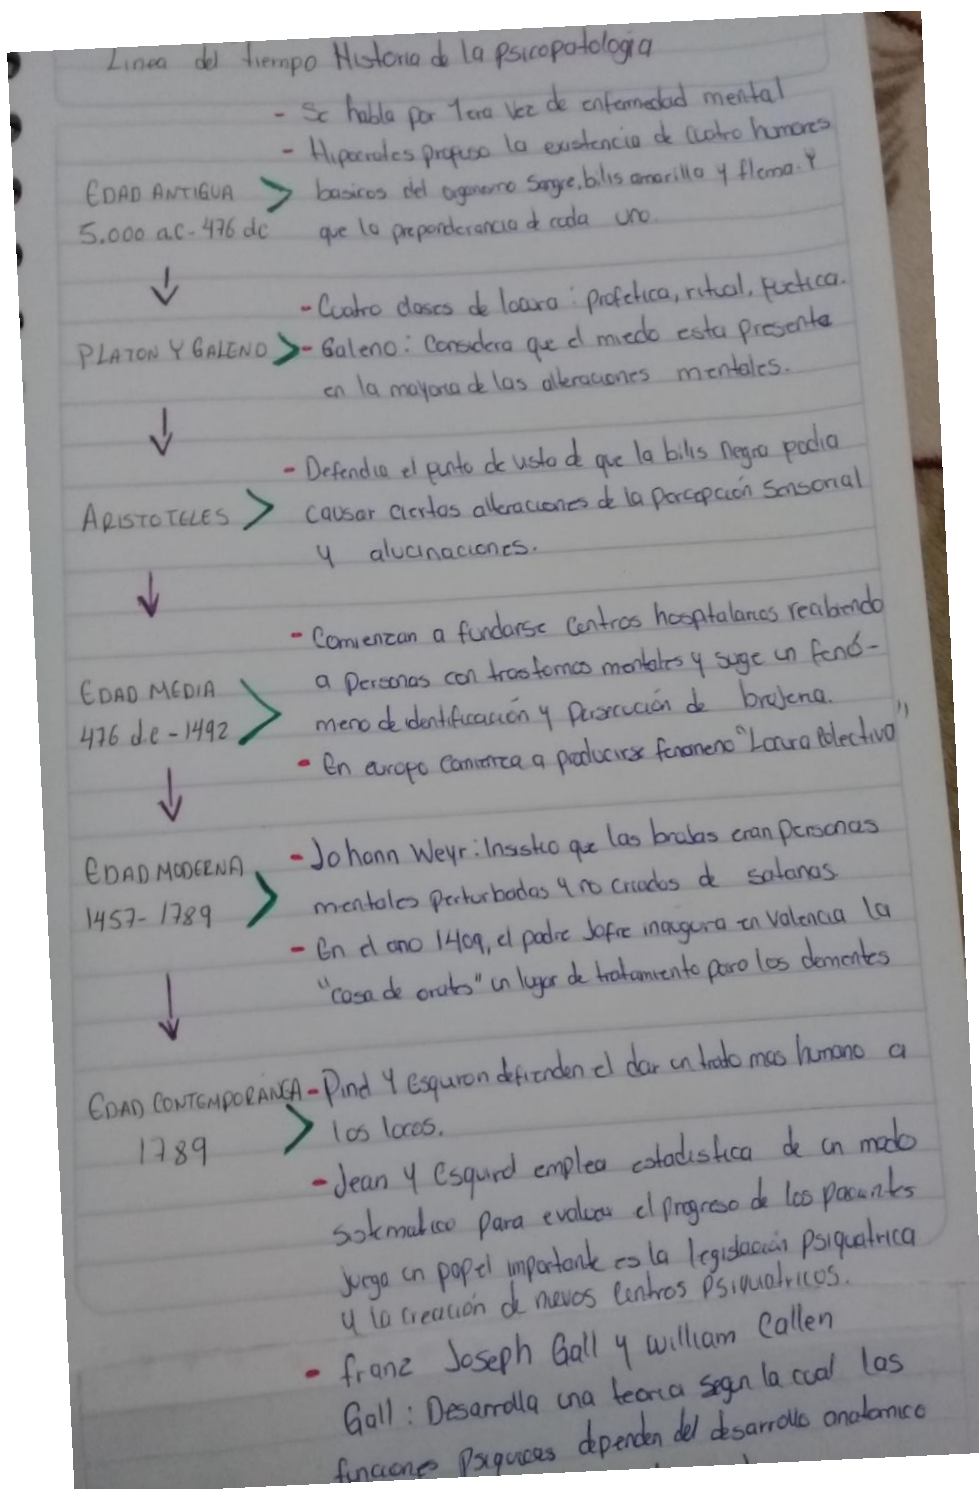 Linea del tiempo Historia de la psicopatologia
- Se habla por 1era vez de enfermedad mental
- Hipocrates propuso la existencia de cuatro humores
EDAD ANTIGUA > basicos del organismo Sangre, bilis amarilla y flema. Y
5.000 a.c - 476 dc que la preponderancia d cada uno.
- Cuatro clases de locura: profetica, ritual, poetica.
PLATON Y GALENO > - Galeno: Considera que el miedo esta presente
en la mayoria de las alteraciones mentales.
- Defendia el punto de vista de que la bilis negra podia
ARISTOTELES > causar ciertas alteraciones de la percepción sensorial
y alucinaciones.
- Comienzan a fundarse centros hospitalarios recibiendo
EDAD MEDIA > a personas con trastornos mentales y suge un fenó-
476 d.c - 1492 meno de identificación y persecución de brujeria.
- En europa comienza a producirse fenomeno "Locura Colectiva"
EDAD MODERNA > - Johann Weyr: Insistio que las brujas eran personas
1457 - 1789 mentales perturbadas y no criadas de satanas.
- En el ano 1409, el padre Jofre inaugura en Valencia la
"casa de orates" un lugar de tratamiento para los dementes
EDAD CONTEMPORANEA - Pinel Y Esquiron defienden el dar un trato mas humano a
1789 > los locos.
- Jean y Esquirol emplea estadistica de un modo
sistematico para evaluar el progreso de los pacientes
juega un papel importante es la legislación psiquiatrica
y la creación de nuevos centros psiquiatricos.
- franz Joseph Gall y william Callen
Gall: Desarrolla una teoria segun la cual las
funciones psiquicas dependen del desarrollo anatomico